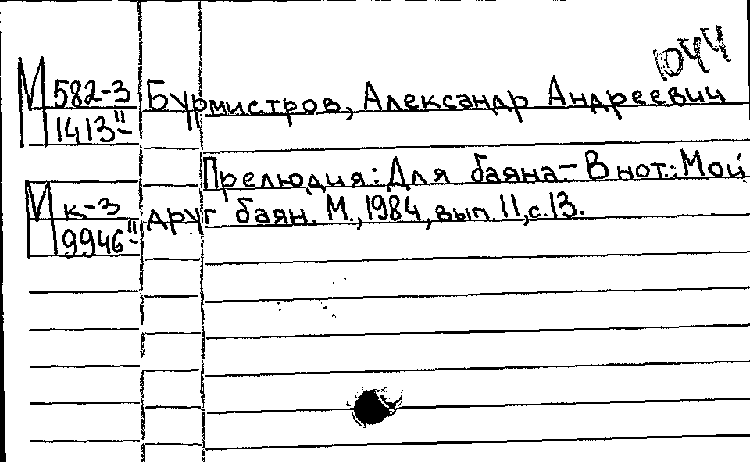 1044
М 582-3 Бурмистров, Александр Андреевич
1413 II
Прелюдия: Для баяна – В нот.: Мой
М к-3 друг баян. М., 1984, вып. 11, с. 13.
9946 II